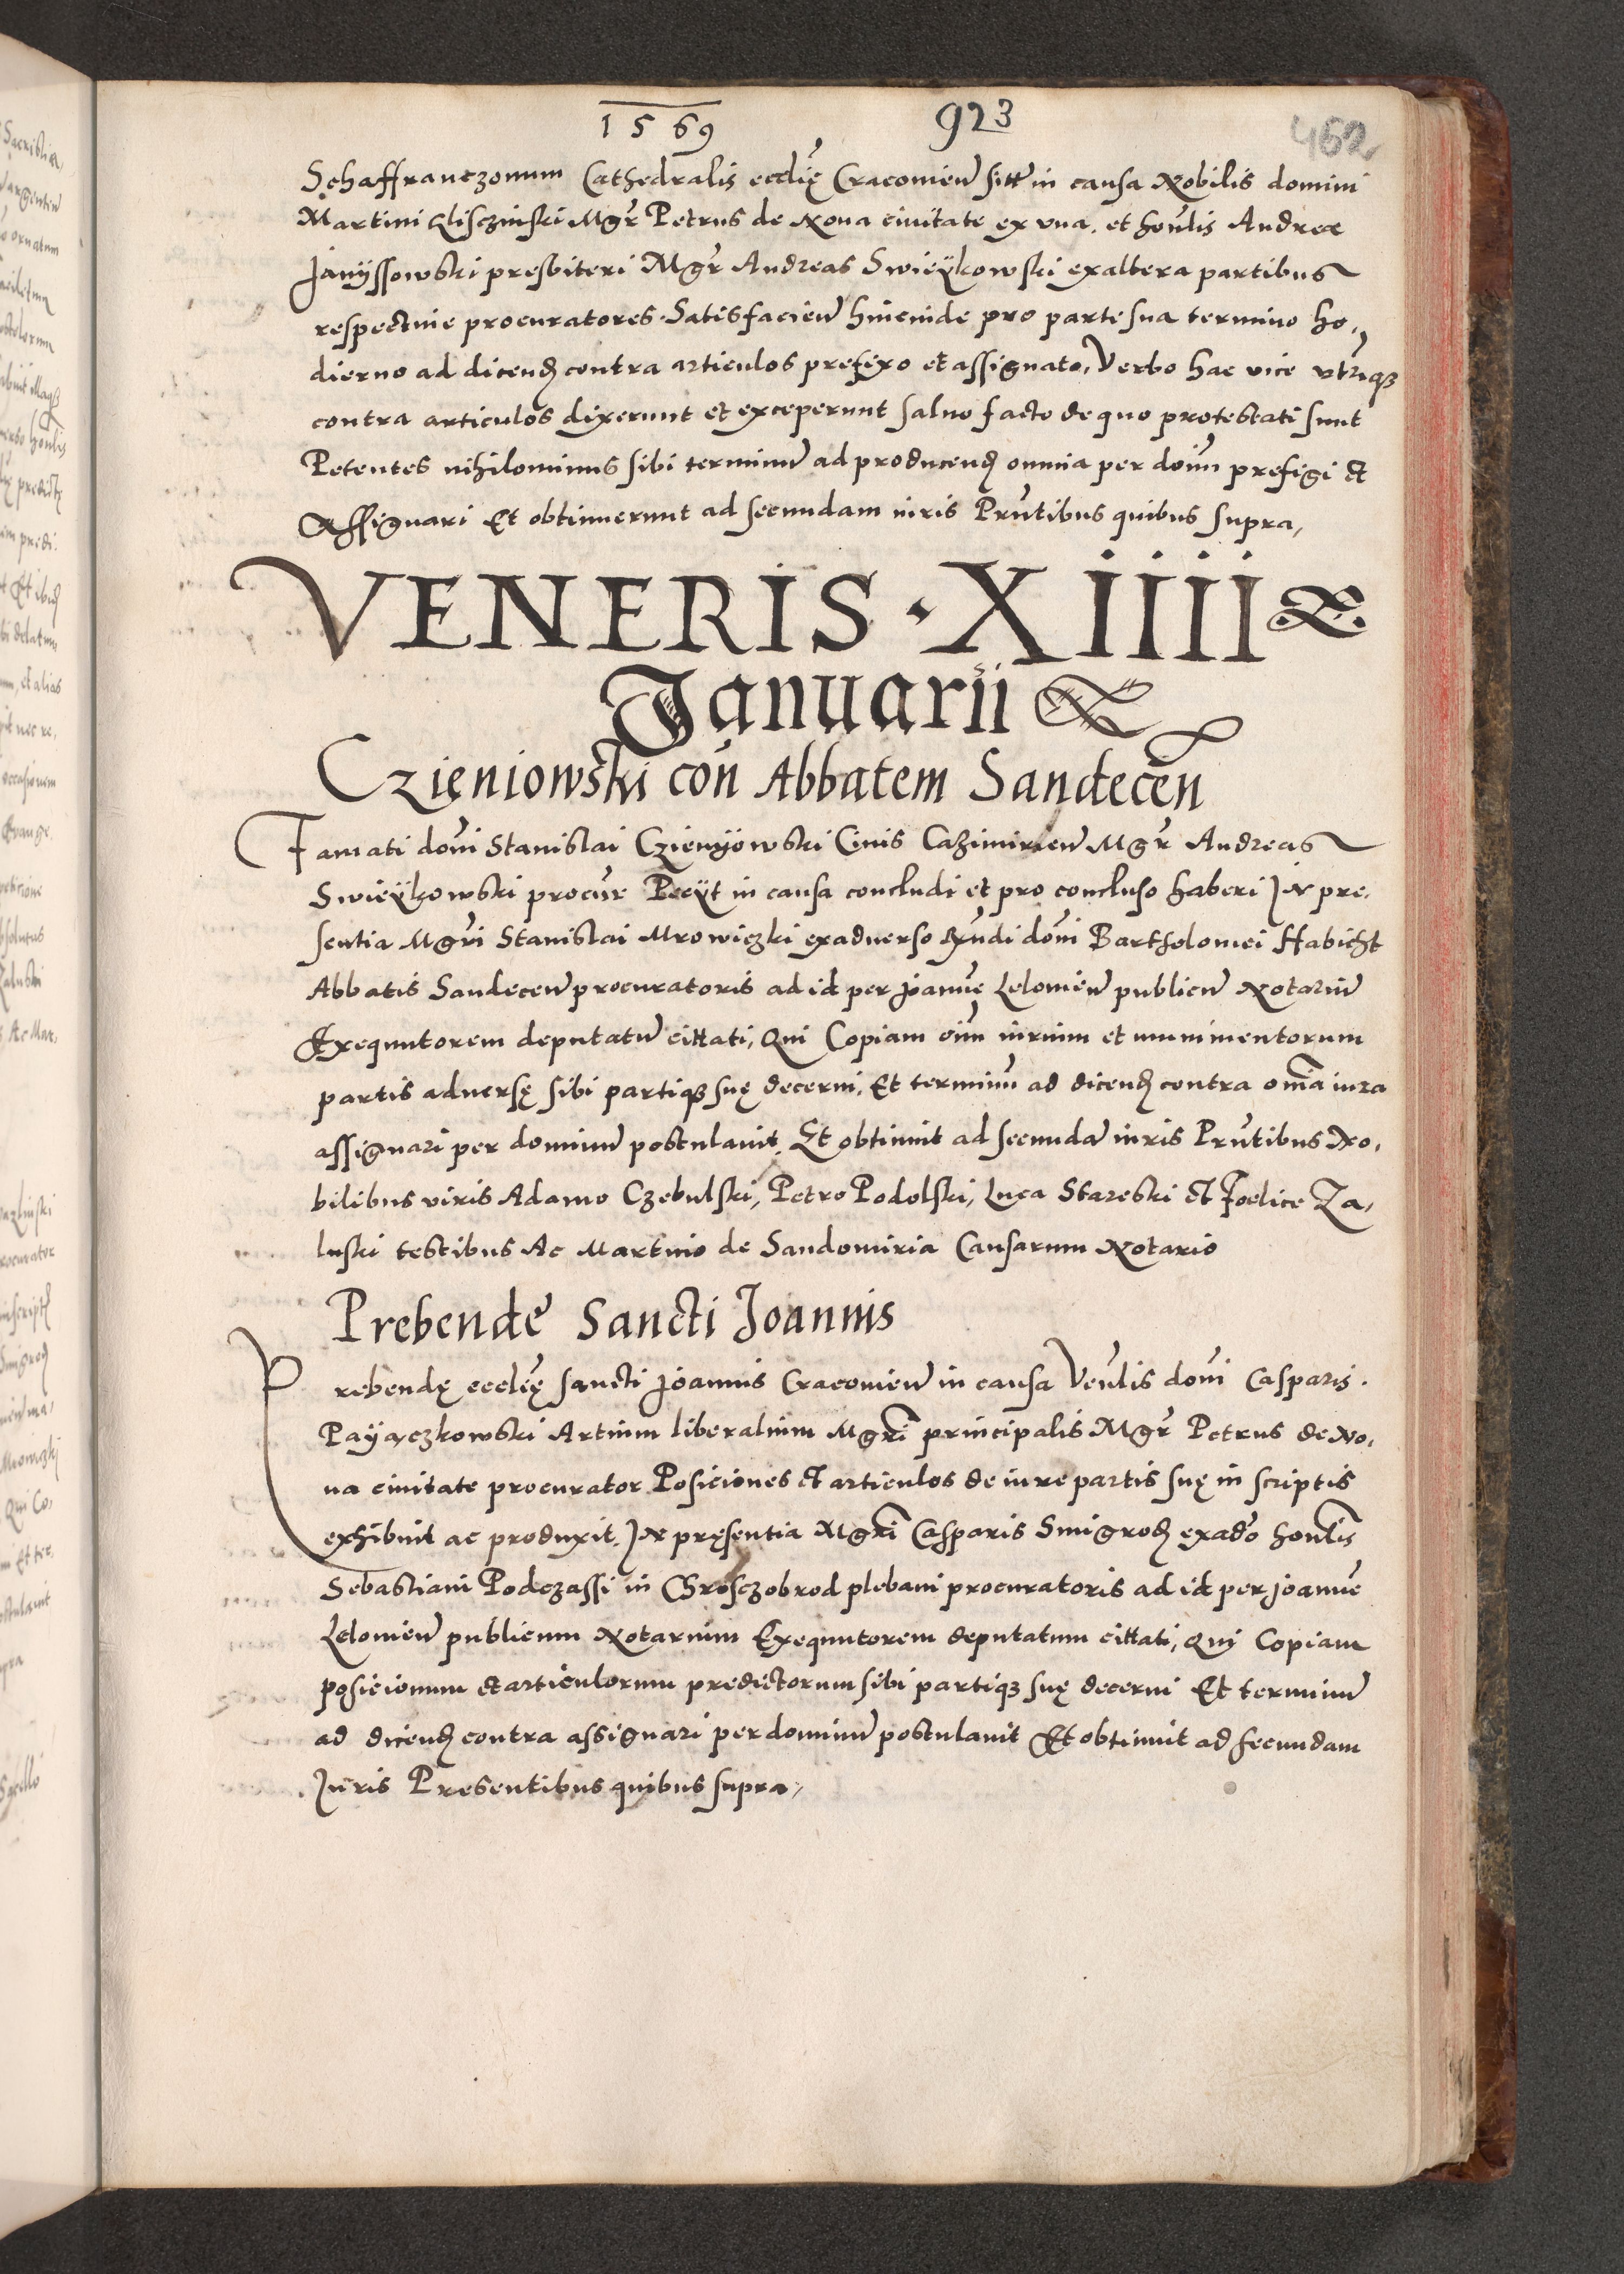 1569 923 462
Schaffranczonum Cathedralis eccłię Cracovien̄ sitt̄ in causa Nobilis domini
Martini Gliſczinſki Mgr̄ Petrus de Nova civitate ex vna, et hon̄lis Andreæ
Janÿſſowſki preſbiteri Mgr̄ Andreas Swieÿkowſki ex altera partibus
reſpective procuratores. Satisfacien̄ hincinde pro parte ſua termino ho,
dierno ad dicend̄ contra articulos prefixo et aſſignato, Verbo hac vice vtriqȝ
contra articulos dixerunt et exceperunt ſalvo facto de quo proteſtati ſunt
Petentes nihilominus ſibi terminū ad producend̄ omnia per dom̄ prefigi et
Aſſignari Et obtinuerunt ad ſecundam iuris Pn̄tibus quibus ſupra,
VENERIS · XIIII
Januarii
Czięniowſki con̄ Abbatem Sandecen̄
Famati dom̄ Stanislai Czienÿowſki Civis Caſimirien̄ Mgr̄ Andreas
Swieÿkowſki procur̄ Petÿt in cauſa concludi et pro concluſo haberi In pre,
ſentia Mgr̄i Stanislai Mrowiczki ex adverſo Rn̄di dom̄ Bartholomei Habicht
Abbatis Sandecen̄ procuratoris ad id per Joannē Lelovien̄ publicū Notariū
Exequutorem deputatū cittati, Qui Copiam om̄ iurium et munimentorum
partis adverſę ſibi partiqȝ ſuę decerni, Et terminū ad dicend̄ contra om̄ia iura
aſſignari per dominū poſtulavit, Et obtinuit ad ſecundā iuris Pn̄tibus No,
bilibus viris Adamo Czebulſki, Petro Podolſki, Luca Starſki et Foelice Za,
luſki teſtibus Ac Martino de Sandomiria Cauſarum Notario
Prebendę Sancti Joannis
Prebendę eccłię ſancti Joannis Cracovien̄ in cauſa Ven̄lis dom̄ Caſparis.
Payączkowſki Artium liberalium Mgr̄i principalis Mgr̄ Petrus de No,
va civitate procurator Poſiciones et articulos de iure partis ſuę in ſcriptis
exhibuit ac produxit, In pręſentia Mgr̄i Caſparis Smigrod̄ ex ad̄o hon̄lis
Sebaſtiani Podczaſſi in Chroſczobrod plebani procuratoris ad id per Joannē
Lelovien̄ publicum Notarium Exequutorem deputatum cittati, Qui Copiam
poſicionum et articulorum predictorum ſibi partiqȝ ſuę decerni Et terminū
ad dicend̄ contra aſſignari per dominū poſtulavit Et obtinuit ad ſecundam
Juris Preſentibus quibus ſupra,